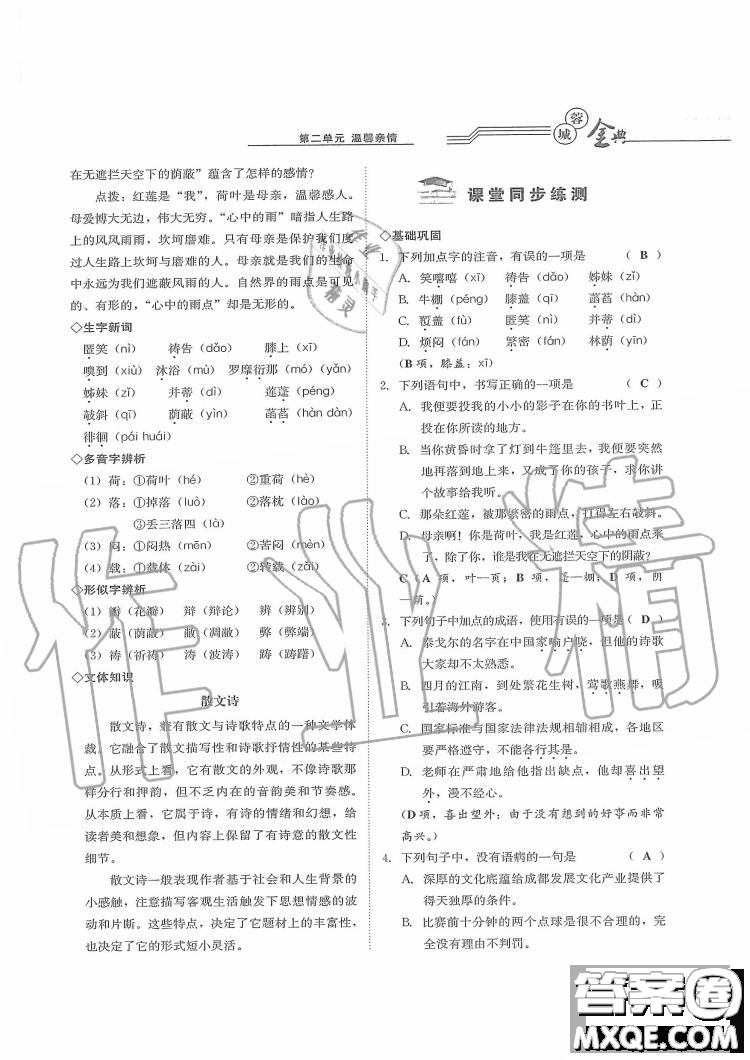 第二单元 温馨亲情
蓉城金典
在无遮拦天空下的荫蔽”蕴含了怎样的感情?
点拨：红莲是“我”，荷叶是母亲，温馨感人。
母爱博大无边，伟大无穷。“心中的雨”暗指人生路
上的风风雨雨，坎坷磨难。只有母亲是保护我们度
过人生路上坎坷与磨难的人。母亲就是我们的生命
中永远为我们遮蔽风雨的人。自然界的雨点是可见
的、有形的，“心中的雨点”却是无形的。
◇生字新词
匿笑（nì） 祷告（dǎo） 膝上（xī）
嗅到（xiù） 沐浴（mù yù） 罗摩衍那（mó）（yǎn）
姊妹（zǐ） 并蒂（dì） 莲蓬（péng）
攲斜（qī） 荫蔽（yìn） 菡萏（hàn dàn）
徘徊（pái huái）
◇多音字辨析
（1）荷：①荷叶（hé） ②重荷（hè）
（2）落：①掉落（luò） ②落枕（lào）
③丢三落四（là）
（3）闷：①闷热（mēn） ②苦闷（mèn）
（4）载：①载体（zài） ②转载（zǎi）
◇形似字辨析
（1）瓣（花瓣） 辩（辩论） 辨（辨别）
（2）蔽（荫蔽） 敝（凋敝） 弊（弊端）
（3）祷（祈祷） 涛（波涛） 踌（踌躇）
◇文体知识
散文诗
散文诗，兼有散文与诗歌特点的一种文学体
裁。它融合了散文描写性和诗歌抒情性的某些特
点。从形式上看，它有散文的外观，不像诗歌那
样分行和押韵，但不乏内在的音韵美和节奏感。
从本质上看，它属于诗，有诗的情绪和幻想，给
读者美和想象，但内容上保留了有诗意的散文性
细节。
散文诗一般表现作者基于社会和人生背景的
小感触，注意描写客观生活触发下思想情感的波
动和片断。这些特点，决定了它题材上的丰富性，
也决定了它的形式短小灵活。
课堂同步练测
◇基础巩固
1. 下列加点字的注音，有误的一项是 （ B ）
A. 笑嘻嘻（xī） 祷告（dǎo） 姊妹（zǐ）
B. 牛棚（péng） 膝盖（qī） 菡萏（hàn）
C. 覆盖（fù） 匿笑（nì） 并蒂（dì）
D. 烦闷（fán） 繁密（fán） 林荫（yīn）
（B项，膝盖：xī）
2. 下列语句中，书写正确的一项是 （ C ）
A. 我便要投我的小小的影子在你的书叶上，正
投在你所读的地方。
B. 当你黄昏时拿了灯到牛篷里去，我便要突然
地再落到地上来，又成了你的孩子，求你讲故
事给我听。
C. 那朵红莲，被那繁密的雨点，打得左右攲斜。
D. 母亲啊！你是荷叶，我是红莲，心中的雨点来
了，除了你，谁是我在无遮拦天空下的阴蔽？
C（A项，叶—页；B项，篷—棚；D项，阴
—荫。）
3. 下列句子中加点的成语，使用有误的一项（ D ）
A. 泰戈尔的名字在中国家喻户晓，但他的诗歌
大家却不太熟悉。
B. 四月的江南，到处繁花生树，莺歌燕舞，吸
引着海外游客。
C. 国家标准与国家法律法规相辅相成，各地区
要严格遵守，不能各行其是。
D. 老师在严肃地给他指出缺点，他却喜出望
外，漫不经心。
（D项，喜出望外：由于没有想到的好事而非常
高兴。）
4. 下列句子中，没有语病的一句是 （ A ）
A. 深厚的文化底蕴给成都发展文化产业提供了
得天独厚的条件。
B. 比赛前十分钟的两个点球是很不合理的，完
全没有理由不判罚。
作业精
答案卷
MXQE.COM